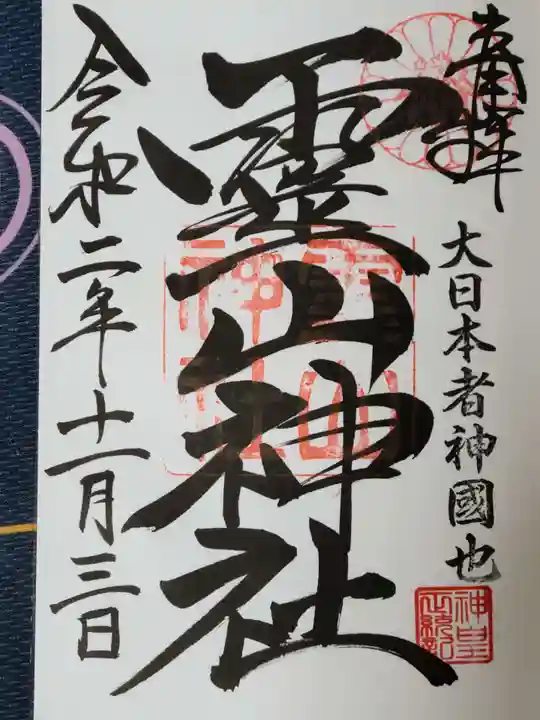 奉拝
大日本者神國也
神皇正統記
霊山神社
令和二年十一月三日